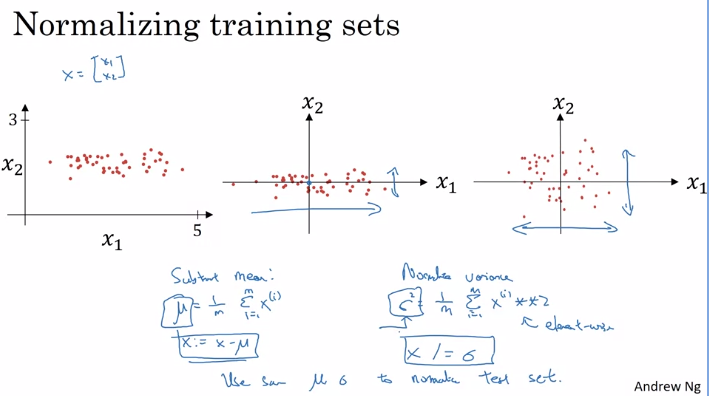 Normalizing training sets
x = [x₁ x₂]
3
x₂
x₁
5
x₂
x₁
x₂
x₁
Subtract mean:
μ = 1/m Σᵢ₌₁ᵐ x⁽ⁱ⁾
x := x - μ
Normalize variance
σ² = 1/m Σᵢ₌₁ᵐ x⁽ⁱ⁾ ** 2
element-wise
x /= σ
Use same μ σ to normalize test set.
Andrew Ng